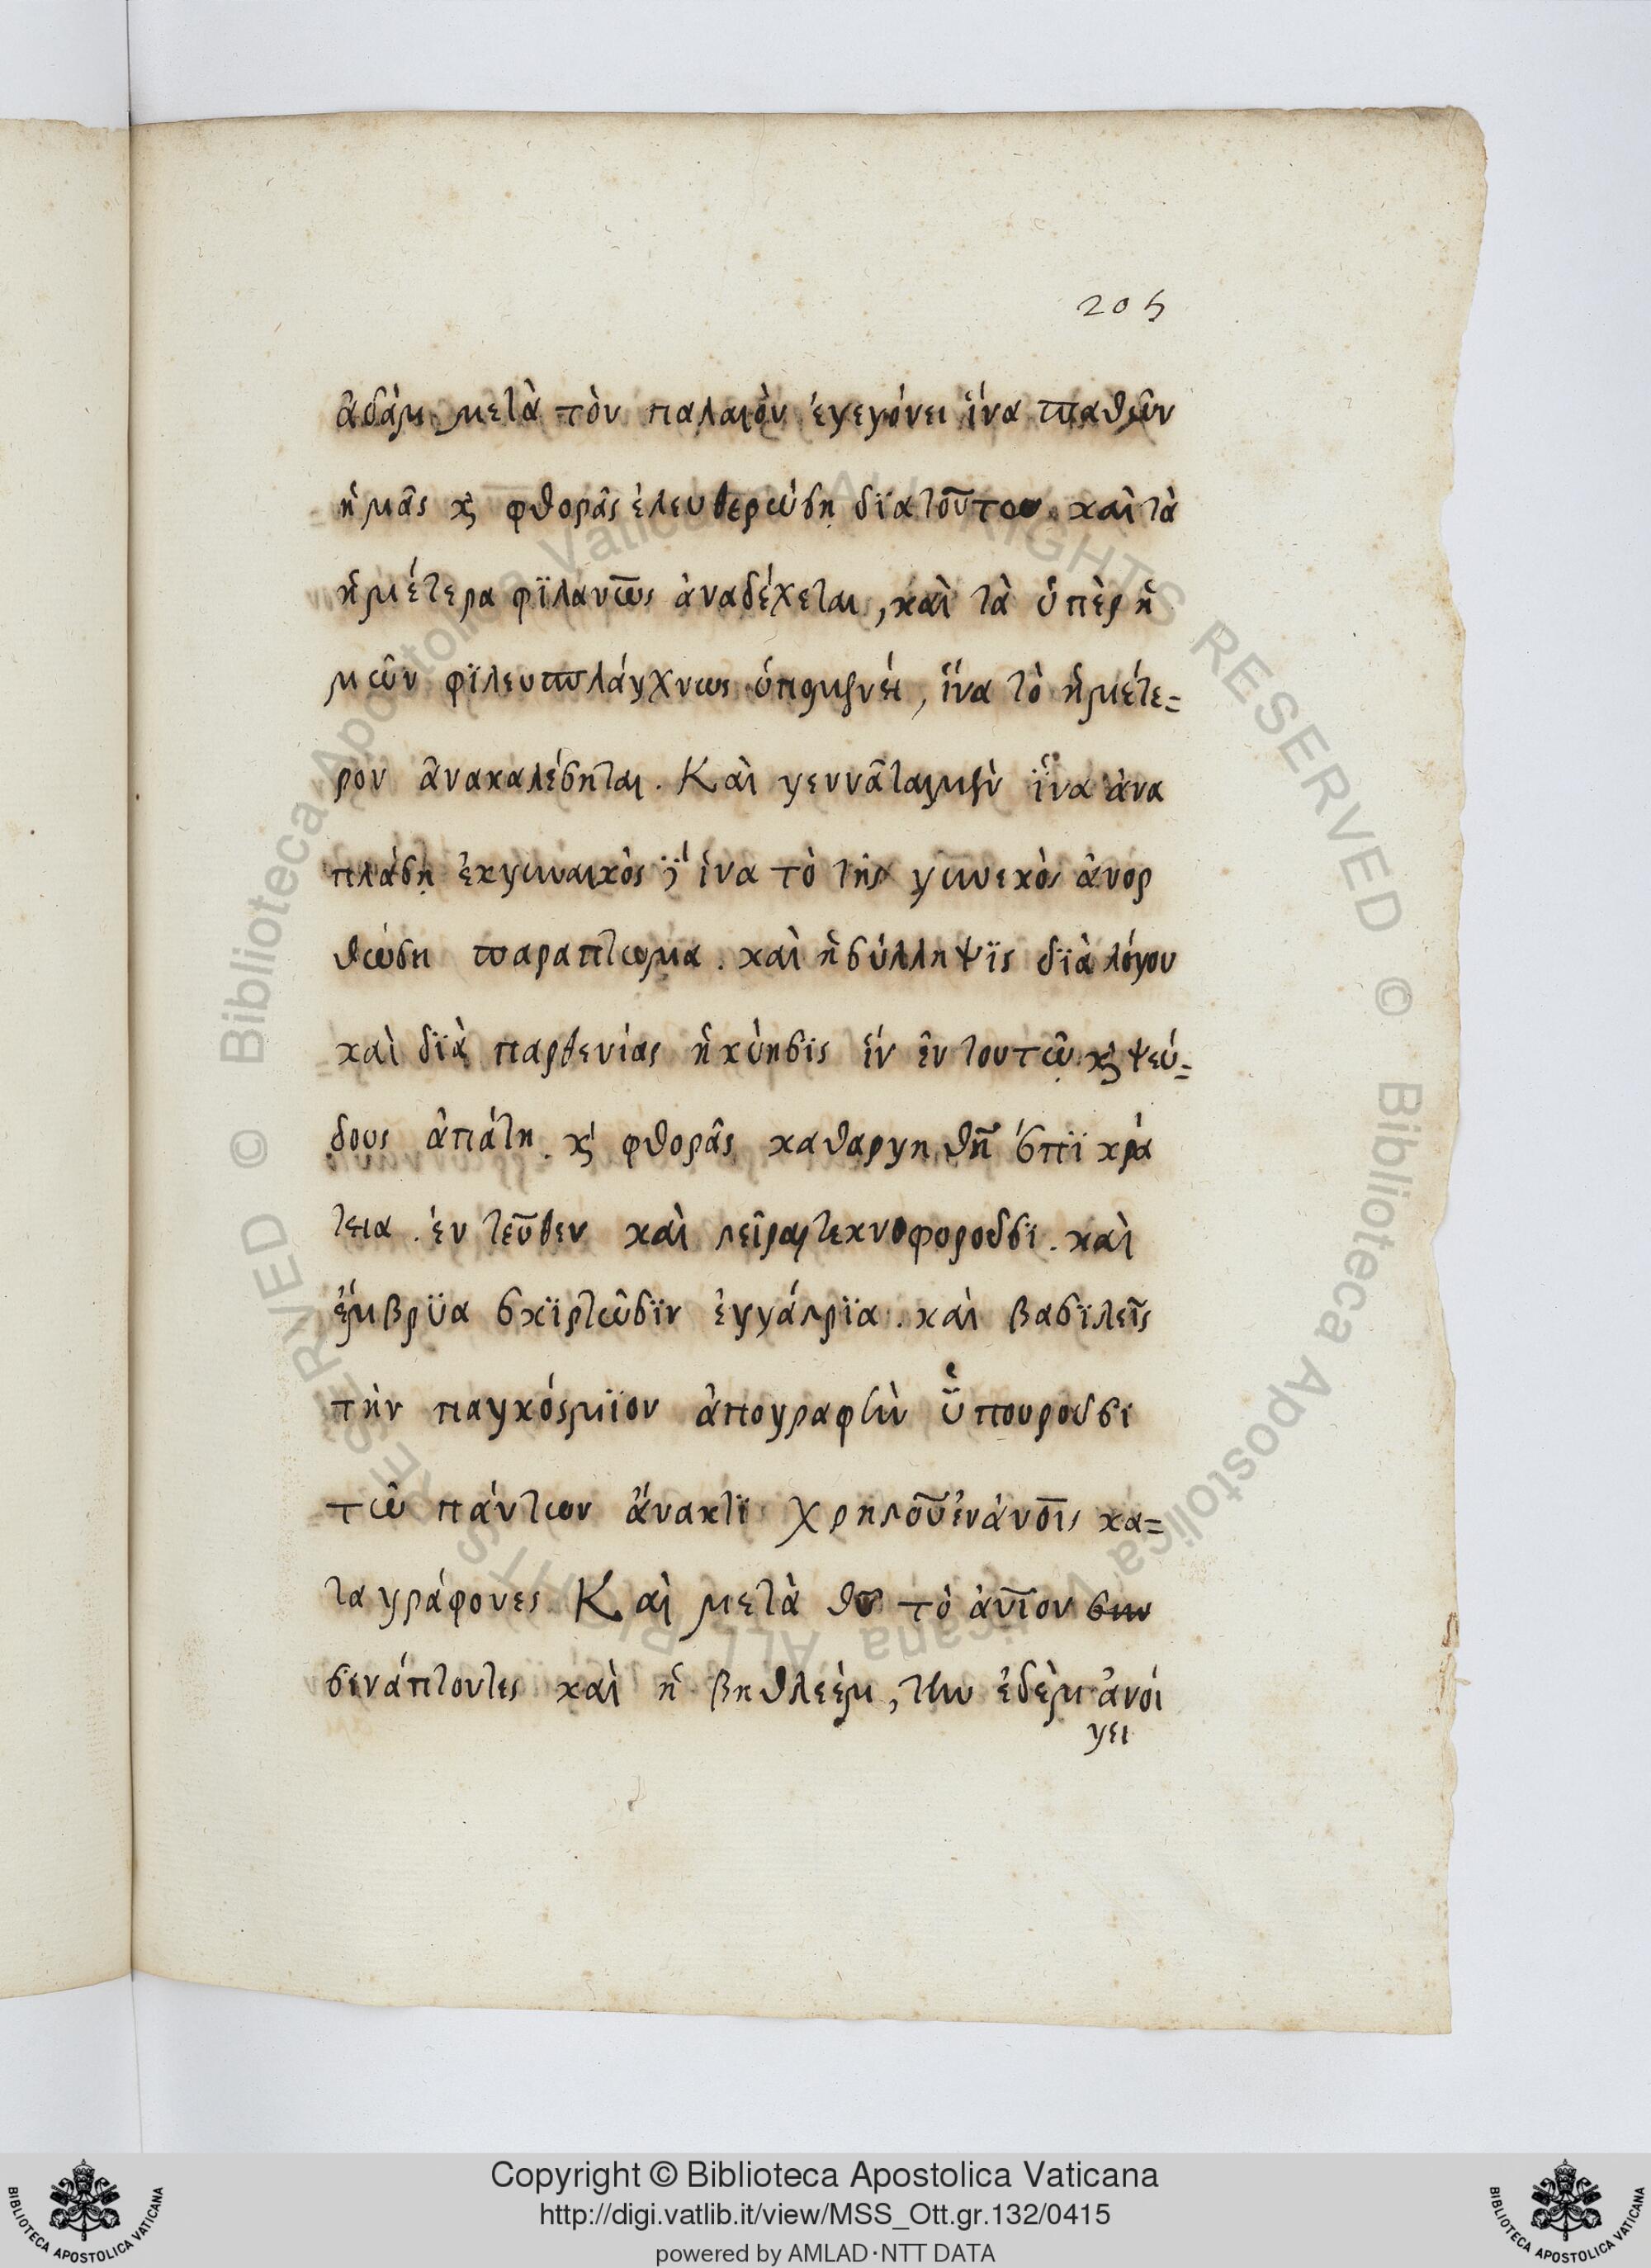 205
ἀδὰμ μετὰ τὸν παλαιὸν ἐγεγόνει ἵνα παθῶν
ἡμᾶς κ̀ φθορᾶς ἐλευθερώση διατοῦτου. καὶ τὰ
ἡμέτερα φϊλαν̅ως ἀναδέχεται, καὶ τὰ ὑπὲρ ἡ
μῶν φϊλευσπλάγχνως
ἵνα τὸ ἡμέτε=
ρον ἀνακαλέσηται. Καὶ γεννᾶται μὲν ἵ̈να ἀνα
πλάση ἐκγυναικὸς ἵνα τὸ τῆς γυνεκὸς ἀνορ
θώση παραπτωμα. καὶ ἡ σύλληψϊς δϊὰ λόγου
καὶ δϊὰ παρθενίας ἡ κύησϊς ἵν ἐν τουτῶ κ̀ ψεύ=
δους ἀπάτη. κ̀ φθορᾶς καθαργηθῆ ἐπϊκρά
τεια. ἐν τεῦθεν καὶ στεῖραι τεκνοφοροῦσϊ. καὶ
ἔμβρϋα σκϊρτῶσϊν ἐγγάστρϊα. καὶ βασϊλεῖς
τὴν παγκόσμϊον ἀπογραφὴν ὑ̈πουροῦσι
τῶ πάντων ἄνακτϊ χρηστοῦ ἐν ἀν̅οις κα=
ταγράφονες Καὶ μετὰ θυ̅ τὸ ἀν̅ϊον συν
σινάπτοντες καὶ ἡ βηθλεὲμ, τὴν ἐδὲμ ἀνοί
γει
Copyright © Biblioteca Apostolica Vaticana
http://digi.vatlib.it/view/MSS_Ott.gr.132/0415
powered by AMLAD·NTT DATA
BIBLIOTECA APOSTOLICA VATICANA
BIBLIOTECA APOSTOLICA VATICANA
© Biblioteca Apostolica Vaticana ALL RIGHTS RESERVED © Biblioteca Apostolica Vaticana ALL RIGHTS RESERVED